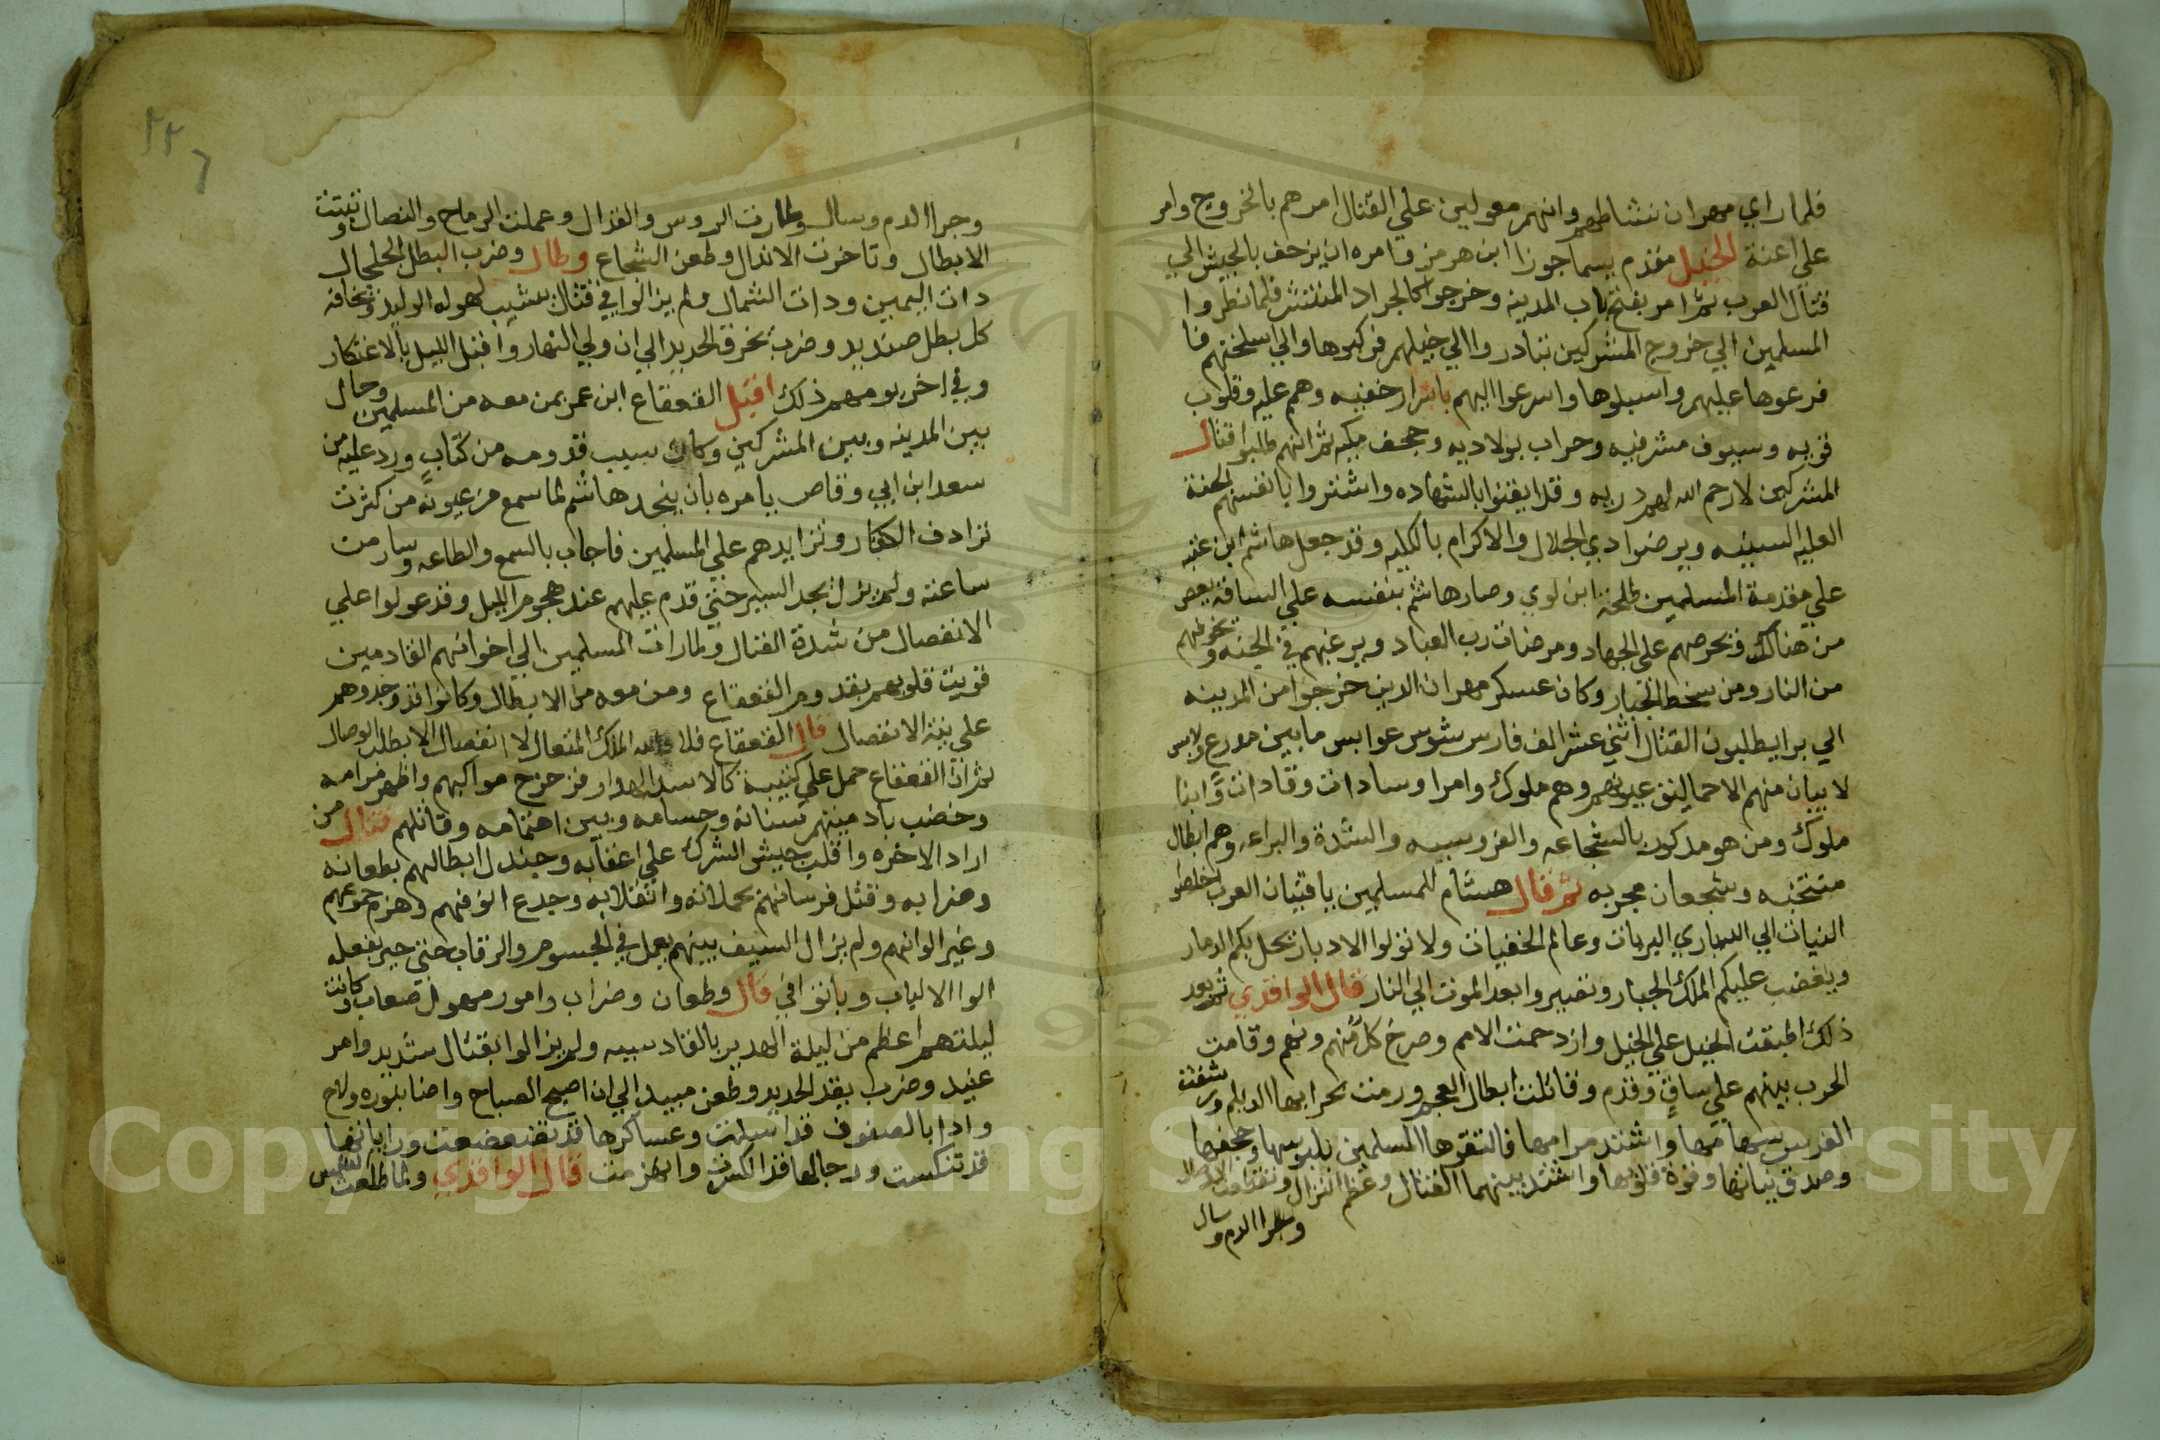 فلما راي مهران نشاطهم وانهم معولين علي القتال امرهم بالخروج وامر
علي اعنة الخيل مقدم يسما جوزا ابن هرمز وامره ان يزحف بالجيش الي
قتال العرب ثم امر بفتح باب المدينه وخرجوا كالجراد المنتشر فلما نظروا
المسلمين الي خروج المشركين تبادروا الي خيلهم فركبوها والي اسلحتهم فا
فرعوها عليهم واسبلوها واسرعوا اليهم باسرار خفيه وهمم عليه وقلوب
قويه وسيوف مشرفيه وحراب بولاديه وحجف مكيه ثم انهم طلبوا قتال
المشركين لا رحم الله لهم دريه وقد ايقنوا بالشهاده واشتروا بانفسهم الجنة
العليه السنيه ويرضوا دي الجلال والاكرام بالكليه وقد جعل هاشم ابن عتبه
علي مقدمة المسلمين طلحة ابن لوي وصار هاشم بنفسه علي الساقة
من هنالك فيحرصهم علي الجهاد ومرضات رب العباد ويرغبهم في الجنه ويخوفهم
من النار ومن سخط الجبار وكان عسكر مهران الدين خرجوا من المدينه
الي برا يطلبون القتال اثني عشر الف فارس شوس عوابس ما بين مدرع ولابس
لا يبان منهم الا حماليق عيونهم وهم ملوك وامرا وسادات وقادات وابنا
ملوك ومن هو مدكور بالشجاعه والفروسيه والشدة والبراعه وهم ابطال
منتخبه وشجعان مجربه ثم قال هشام للمسلمين يا فتيان العرب اخلصوا
النيات الي الباري البريات وعالم الخفيات ولا تولوا الادبار تحل بكم الدمار
ويغضب عليكم الملك الجبار وتصيروا بعد الموت الي النار قال الواقدي ثم بعد
ذلك اطبقت الخيل علي الخيل وازدحمت الامم وصرخ كل منهم ونهم وقامت
الحرب بينهم علي ساق وقدم وقاتلت ابطال العجم ورمت بحرابها الديلم ورشقت
الفرس سهامها واشتد مرامها فالتقوها المسلمين بلبوسها وحجفها
وصدق نياتها وقوة قلوبها واشتد بينهما القتال وعظم النزال وتقطعت الاوصال
وجرا الدم وسال
٢٢٦
وجرا الدم وسال وطارت الروس والقدال وعملت الرماح والنصال وتبتت
الابطال وتاخرت الاندال وطعن الشجاع وطال وضرب البطل الجلجال
دات اليمين ودات الشمال ولم يزالوا في قتال يشيب لهوله الوليد وتخافه
كل بطل صنديد وضرب يخرق الحديد الي ان ولي النهار واقبل الليل بالاعتكار
وفي اخر يومهم ذلك اقبل القعقاع ابن عمر بمن معه من المسلمين وحال
بين المدينه وبين المشركين وكان سبب قدومه من كتاب ورد عليه من
سعد ابن ابي وقاص يامره بان ينجد هاشم لما سمع من عيونه من كثرت
ترادف الكفار وتزايدهم علي المسلمين فاجاب بالسمع والطاعه وسار من
ساعته ولم يزل يجد السير حتي قدم عليهم عند هجوم الليل وقد عولوا علي
الانفصال من شدة القتال ولما رات المسلمين الي اخوانهم القادمين
قويت قلوبهم بقدوم القعقاع ومن معه من الابطال وكانوا قد وجدوهم
علي نية الانفصال قال القعقاع فلا والله الملك المتعال لا انفصال الا بطلب الوصال
ثم ان القعقاع حمل علي كتيبه كالاسد الهدار فزحزح مواكبهم واظهر مرامه
وخضب بادميتهم سنانه وحسامه وبين اهتمامه وقاتلهم قتال من
اراد الاخره واقلب جيش الشرك علي اعقابه وجندل ابطالهم بطعانه
وضرابه وقتل فرسانهم بحملاته وانقلابه وجدع انوفهم وهزم جموعهم
وغير الوانهم ولم يزال السيف بينهم يعمل في الجسوم والرقاب حتي حير بفعله
الوا الالباب وباتوا في قال وطعان وضراب وامور مهول صعاب وكانت
ليلتهم اعظم من ليلة الهدير بالقادسيه ولم يزالوا بقتال شديد وامر
عنيد وضرب يقد الحديد وطعن مبيد الي ان اصبح الصباح واضا بنوره ولاح
وادا بالصفوف قد اسبلت وعساكرها قد تضعضعت وراياتها
قد تنكست ورجالها قد انكسرت وانهزمت قال الواقدي ولما طلعت الشمس
Copyright © King Saud University
1957